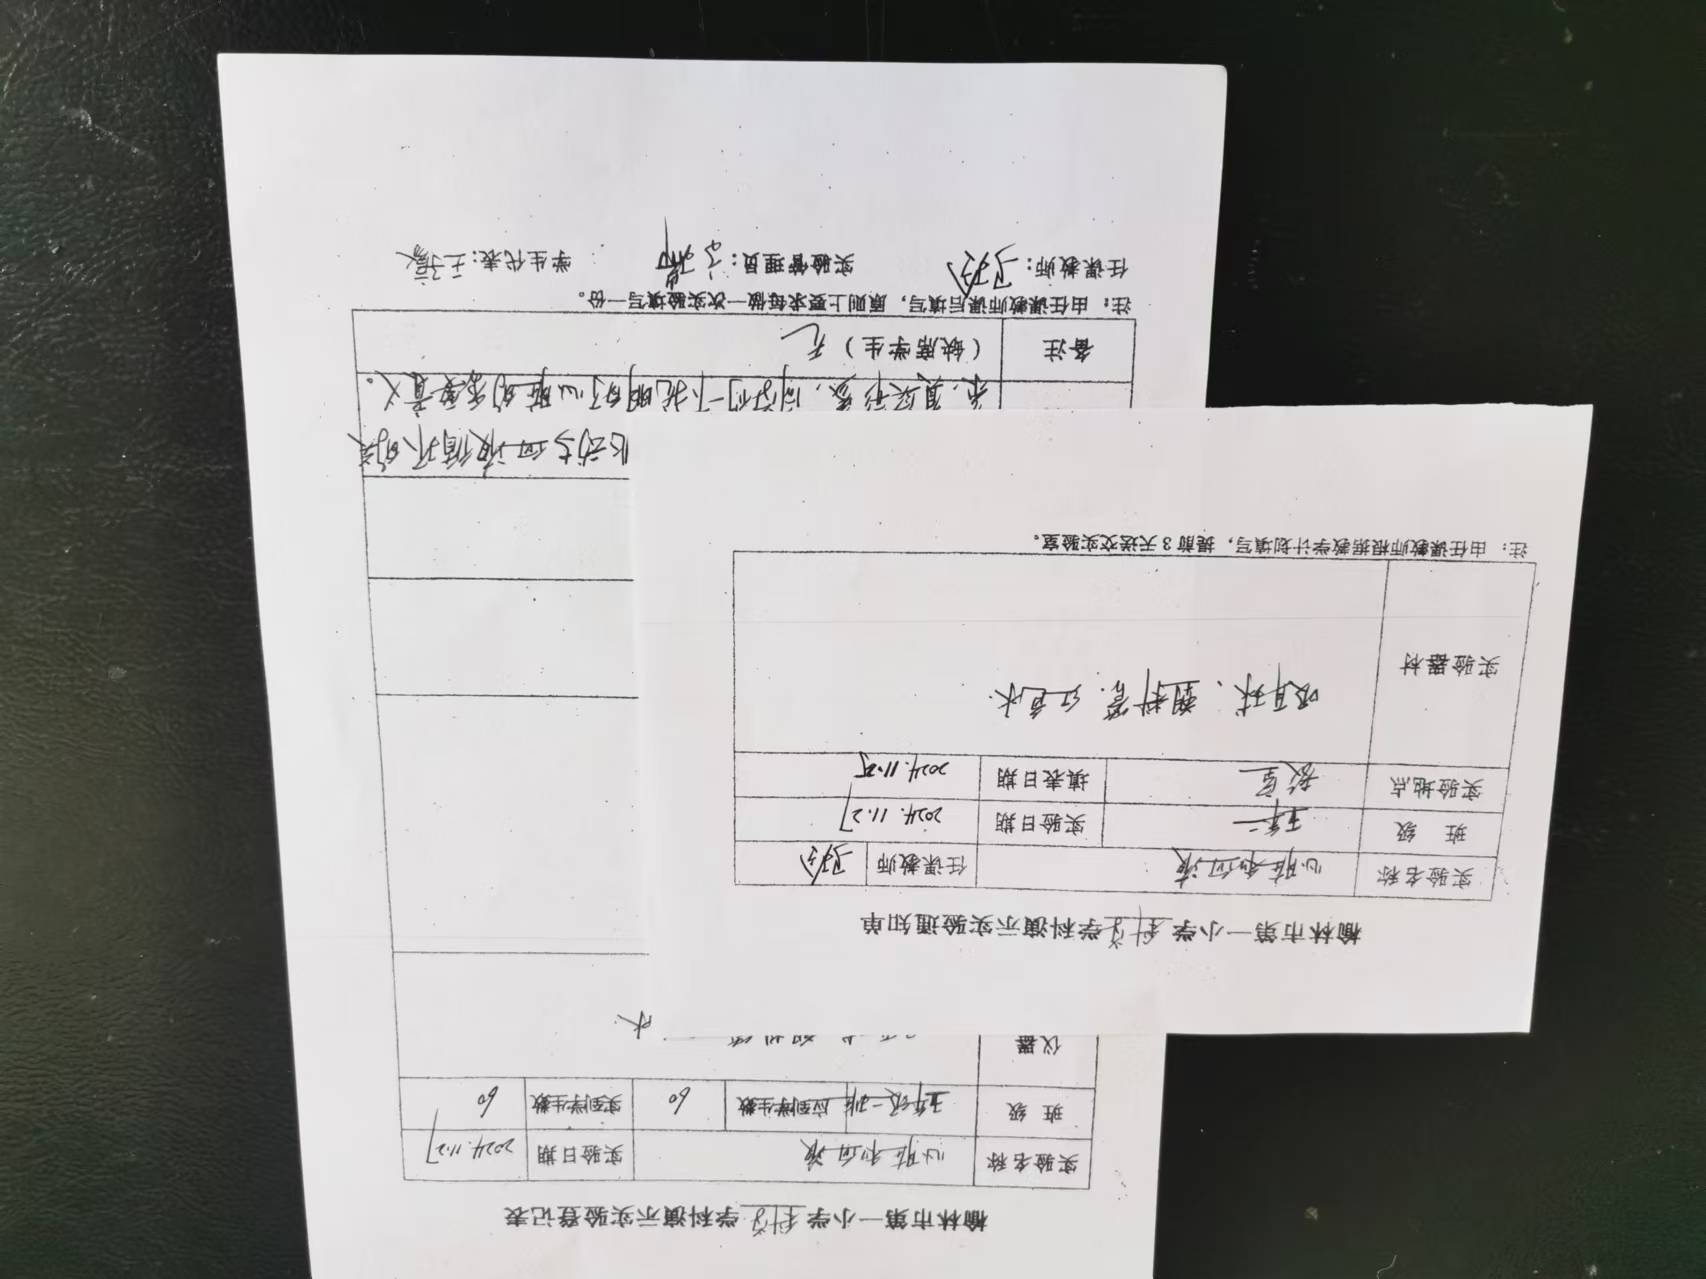 榆林市第一小学科学学科演示实验通知单
实验名称 心脏和血液 任课教师
班 级 五年二 实验日期 2024.11.27
实验地点 教室 填表日期 2024.11.25
实验器材 吸耳球、塑料管、红色水.
注：由任课教师根据教学计划填写，提前3天送交实验室。
榆林市第一小学科学学科演示实验登记表
实验名称 心脏和血液 实验日期 2024.11.27
班 级 五年级二班 应到学生数 60 实到学生数 60
仪器 水.
心动与血液循环的关
系，真实形象，同学们一下就明白了心脏的重要意义。
备注 （缺席学生）无
注：由任课教师课后填写，原则上要求每做一次实验填写一份。
任课教师： 实验管理员： 学生代表：